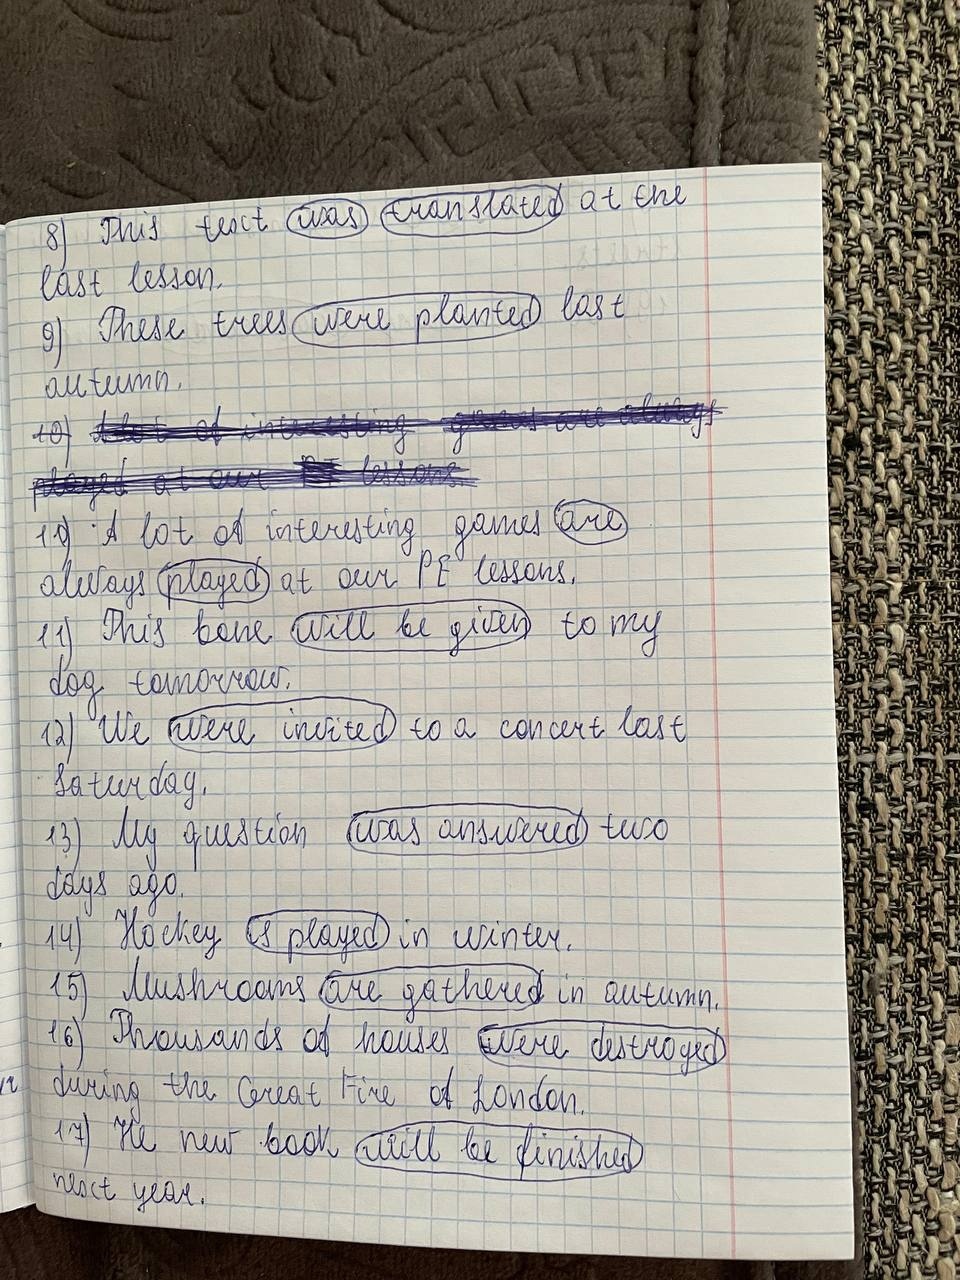 8) This text was translated at the
last lesson.
9) These trees were planted last
autumn.
10) A lot of interesting games are always
played at our PE lessons
10) A lot of interesting games are
always played at our PE lessons.
11) This bone will be given to my
dog tomorrow.
12) We were invited to a concert last
Saturday.
13) My question was answered two
days ago.
14) Hockey is played in winter.
15) Mushrooms are gathered in autumn.
16) Thousands of houses were destroyed
during the Great Fire of London.
17) He new book will be finished
next year.